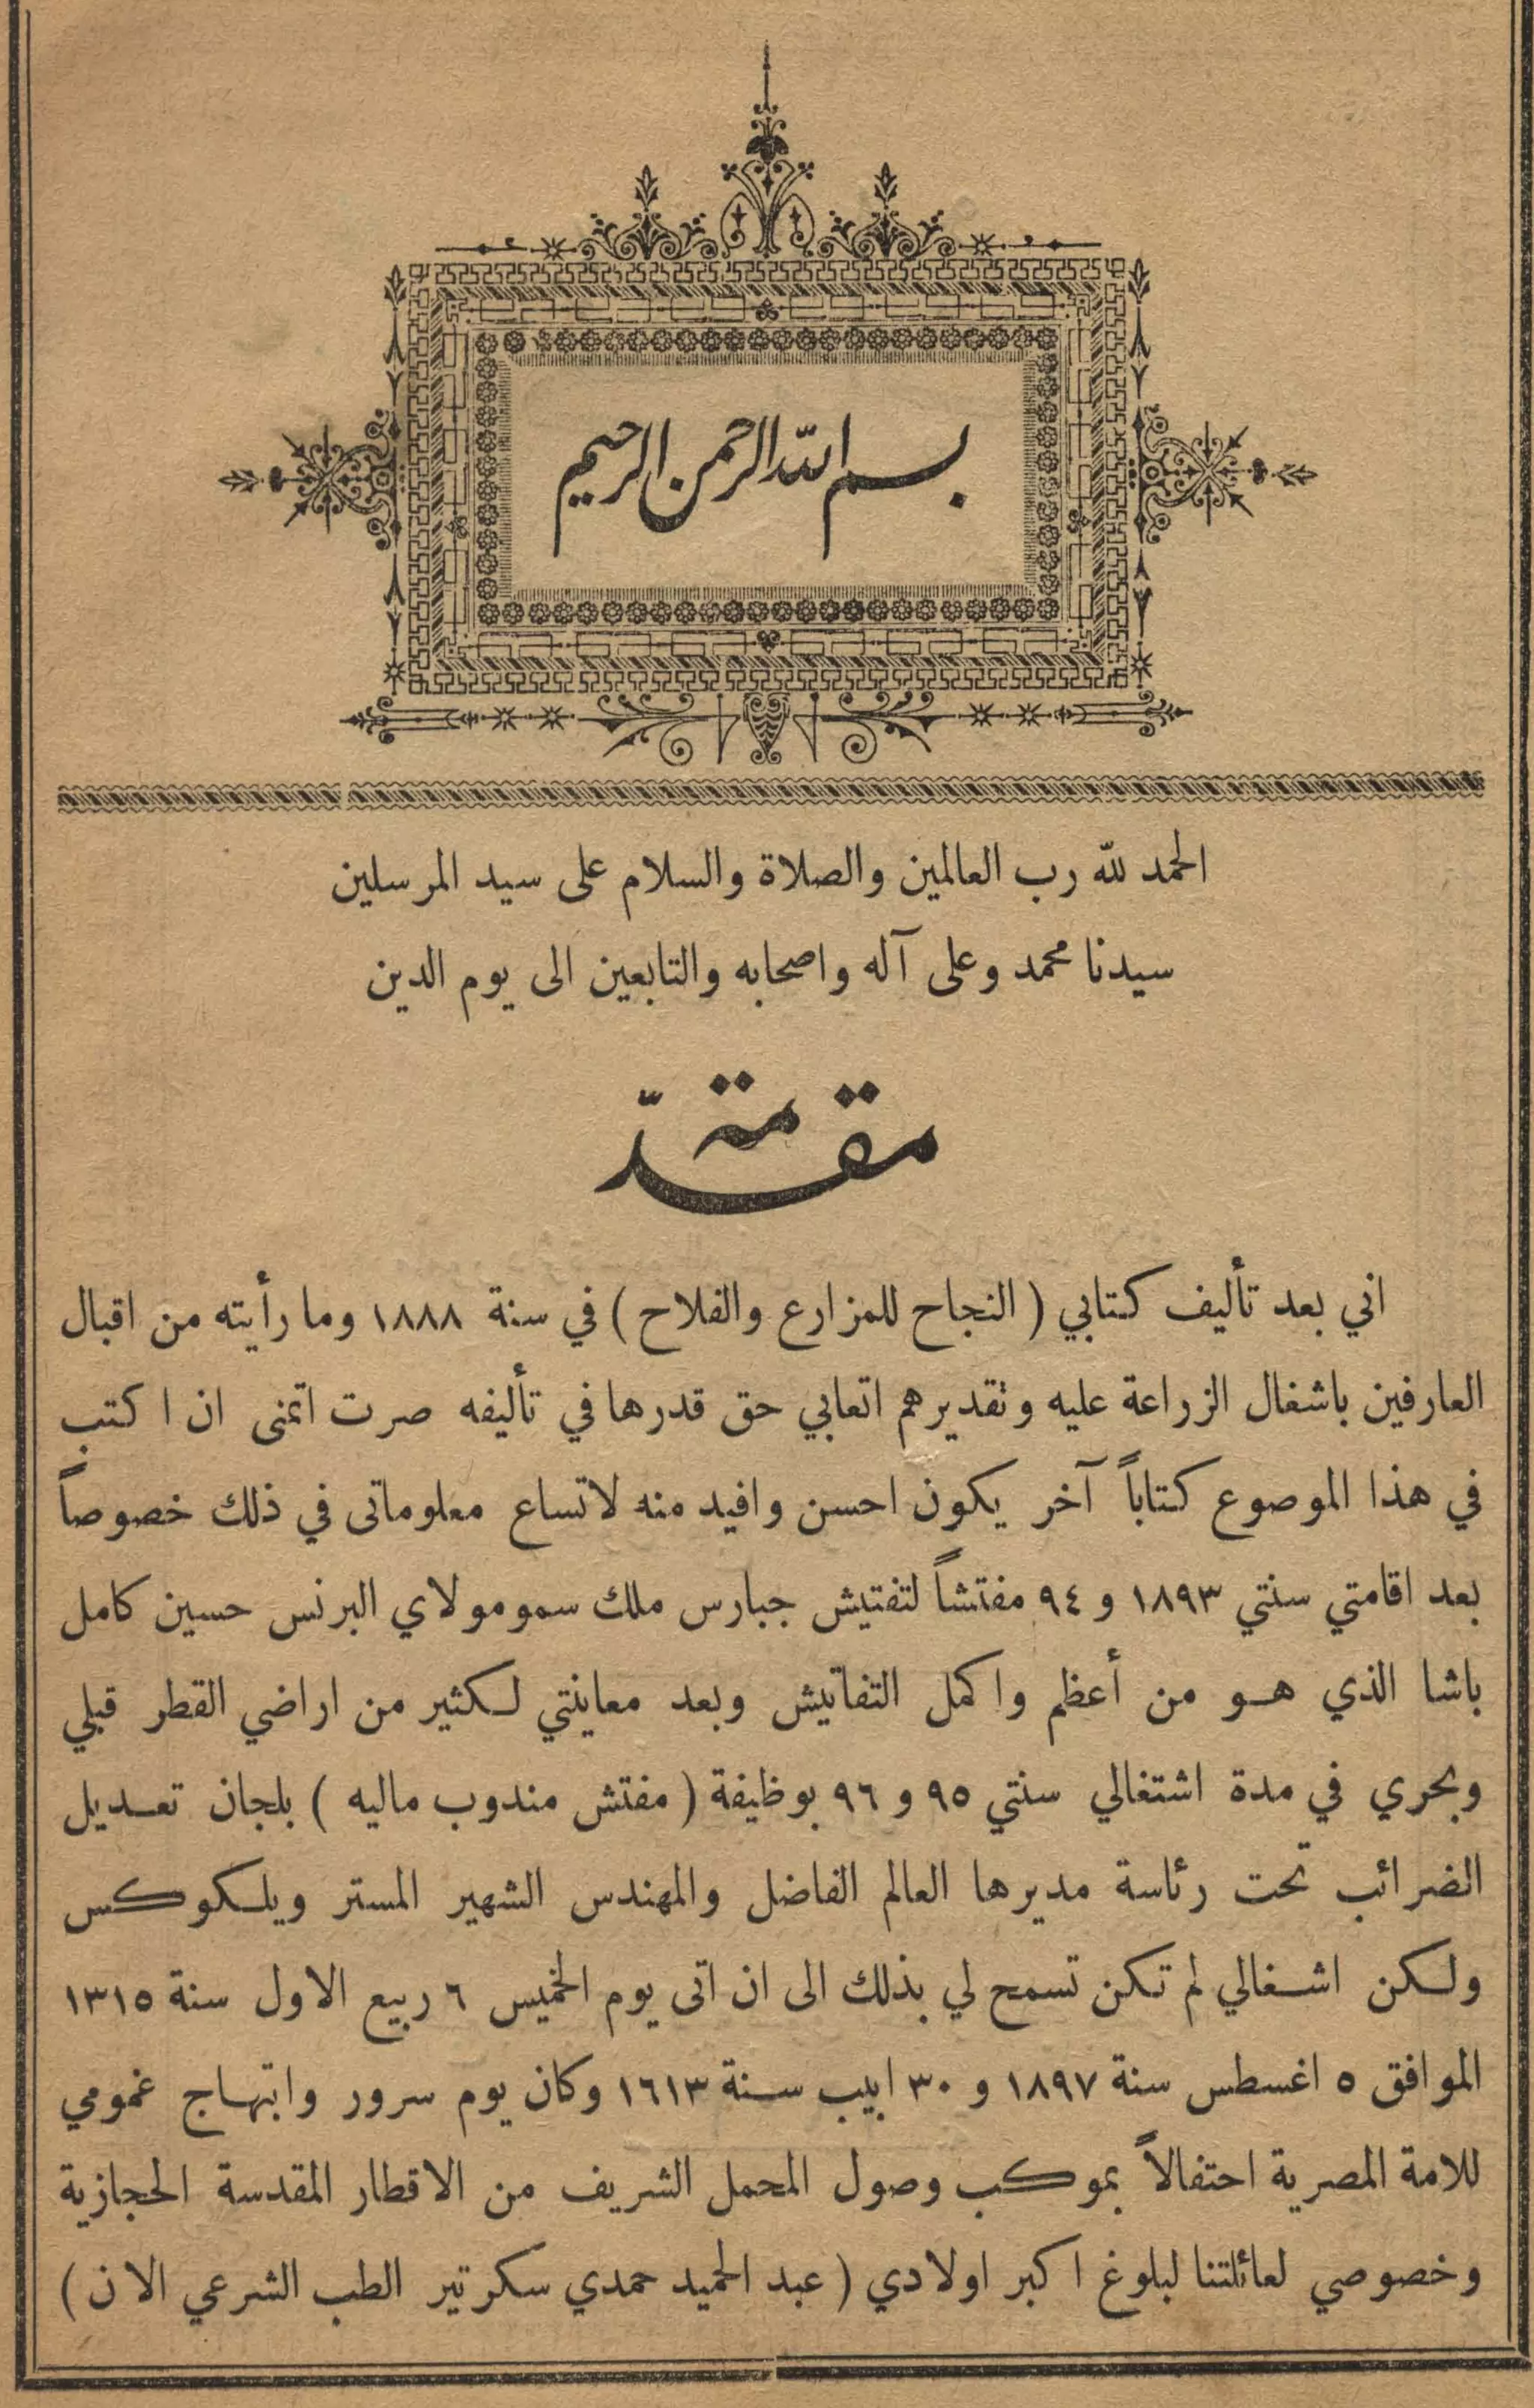 بسم الله الرحمن الرحيم
الحمد لله رب العالمين والصلاة والسلام على سيد المرسلين
سيدنا محمد وعلى آله واصحابه والتابعين الى يوم الدين
مقدّمة
اني بعد تأليف كتابي ( النجاح للمزارع والفلاح ) في سنة ١٨٨٨ وما رأيته من اقبال
العارفين باشغال الزراعة عليه وتقديرهم اتعابي حق قدرها في تأليفه صرت اتمنى ان اكتب
في هذا الموصوع كتاباً آخر يكون احسن وافيد منه لاتساع معلوماتى في ذلك خصوصاً
بعد اقامتي سنتي ١٨٩٣ و ٩٤ مفتشاً لتفتيش جبارس ملك سمو مولاي البرنس حسين كامل
باشا الذي هو من أعظم واكمل التفاتيش وبعد معاينتي لكثير من اراضي القطر قبلي
وبحري في مدة اشتغالي سنتي ٩٥ و ٩٦ بوظيفة ( مفتش مندوب ماليه ) بلجان تعديل
الضرائب تحت رئاسة مديرها العالم الفاضل والمهندس الشهير المستر ويلكوكس
ولكن اشغالي لم تكن تسمح لي بذلك الى ان اتى يوم الخميس ٦ ربيع الاول سنة ١٣١٥
الموافق ٥ اغسطس سنة ١٨٩٧ و ٣٠ ابيب سنة ١٦١٣ وكان يوم سرور وابتهاج عمومي
للامة المصرية احتفالاً بموكب وصول المحمل الشريف من الاقطار المقدسة الحجازية
وخصوصي لعائلتنا لبلوغ اكبر اولادي ( عبد الحميد حمدي سكرتير الطب الشرعي الان )